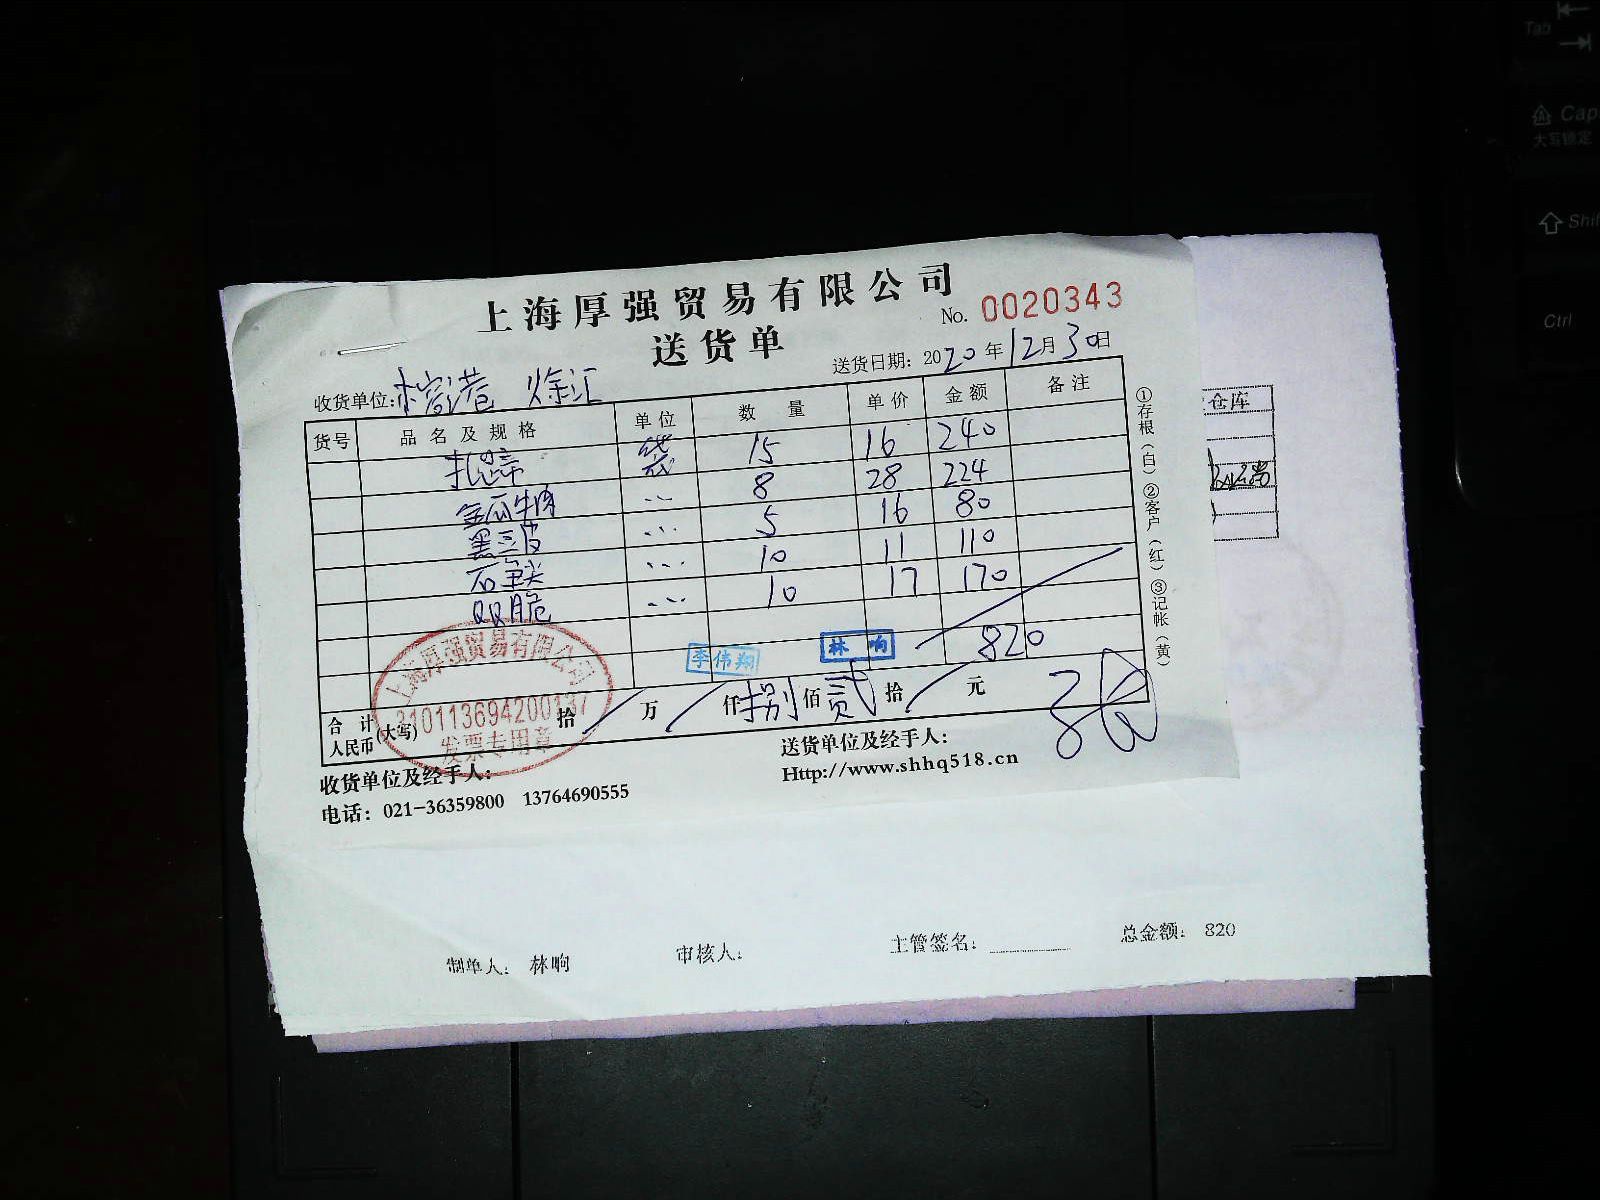 上海厚强贸易有限公司
No. 0020343
送货单
送货日期: 2020年12月30日
收货单位: 徐汇
货号 品名及规格 单位 数量 单价 金额 备注
扎蹄 袋 15 16 240
金瓜牛肉 … 8 28 224
黑三皮 … 5 16 80
… 10 11 110
QQ脆 … 10 17 170
李伟翔 林响 820
合计人民币(大写) 拾 万 仟 捌 佰 贰 拾 元
上海厚强贸易有限公司
310113694200137
发票专用章
收货单位及经手人:
送货单位及经手人:
电话: 021-36359800 13764690555
Http://www.shhq518.cn
①存根(白)②客户(红)③记帐(黄)
仓库
制单人: 林响 审核人: 主管签名: 总金额: 820
Tab
Cap
大写锁定
Shif
Ctrl